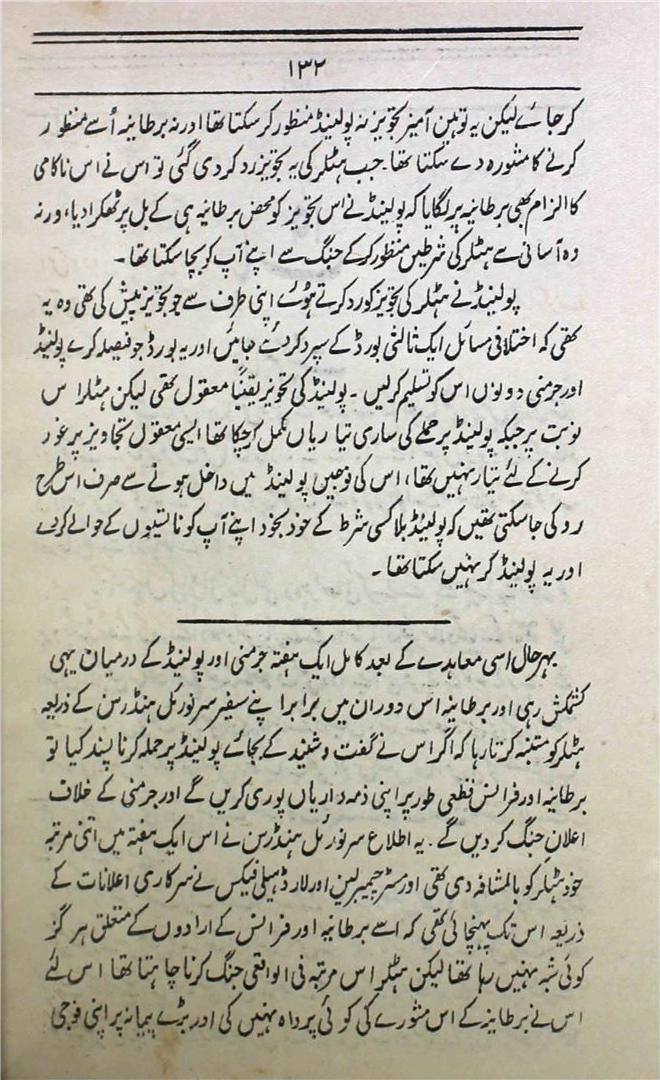 ۱۳۲
کر جائے لیکن یہ توہین آمیز تجویز نہ پولینڈ منظور کر سکتا تھا اور نہ برطانیہ اُسے منظور
کرنے کا مشورہ دے سکتا تھا۔ جب ہٹلر کی یہ تجویز رد کر دی گئی تو اس نے اس ناکامی
کا الزام بھی برطانیہ پر لگایا کہ پولینڈ نے اس تجویز کو محض برطانیہ ہی کے بل پر ٹھکرا دیا، ورنہ
وہ آسانی سے ہٹلر کی شرطیں منظور کر کے جنگ سے اپنے آپ کو بچا سکتا تھا۔
پولینڈ نے ہٹلر کی تجویز کو رد کرتے ہوئے اپنی طرف سے جو تجویز پیش کی تھی وہ یہ
تھی کہ اختلافی مسائل ایک ثالثی بورڈ کے سپرد کر دئے جائیں اور یہ بورڈ جو فیصلہ کرے پولینڈ
اور جرمنی دونوں اس کو تسلیم کر لیں۔ پولینڈ کی تجویز یقیناً معقول تھی لیکن ہٹلر اس
نوبت پر جبکہ پولینڈ پر حملے کی ساری تیاریاں مکمل کر چکا تھا ایسی معقول تجاویز پر غور
کرنے کے لئے تیار نہیں تھا، اس کی فوجیں پولینڈ میں داخل ہونے سے صرف اس طرح
روکی جا سکتی تھیں کہ پولینڈ بلا کسی شرط کے خود بخود اپنے آپ کو نانسیوں کے حوالے کر دے
اور یہ پولینڈ کر نہیں سکتا تھا۔
بہر حال اسی معاہدے کے بعد کامل ایک ہفتہ جرمنی اور پولینڈ کے درمیان یہی
کشمکش رہی اور برطانیہ اس دوران میں برابر اپنے سفیر سر نوئل ہنڈرسن کے ذریعہ
ہٹلر کو متنبہ کرتا رہا کہ اگر اس نے گفت و شنید کے بجائے پولینڈ پر حملہ کرنا پسند کیا تو
برطانیہ اور فرانس قطعی طور پر اپنی ذمہ داریاں پوری کریں گے اور جرمنی کے خلاف
اعلانِ جنگ کر دیں گے۔ یہ اطلاع سر نوئل ہنڈرسن نے اس ایک ہفتہ میں اتنی مرتبہ
خود ہٹلر کو بالمشافہ دی تھی اور مسٹر چیمبرلین اور لارڈ ہیلی فیکس نے سرکاری اعلانات کے
ذریعہ اس تک پہنچائی تھی کہ اسے برطانیہ اور فرانس کے ارادوں کے متعلق ہرگز
کوئی شبہ نہیں رہا تھا لیکن ہٹلر اس مرتبہ فی الواقعی جنگ کرنا چاہتا تھا اس لئے
اس نے برطانیہ کے اس مشورے کی کوئی پرواہ نہیں کی اور بڑے پیمانہ پر اپنی فوجی